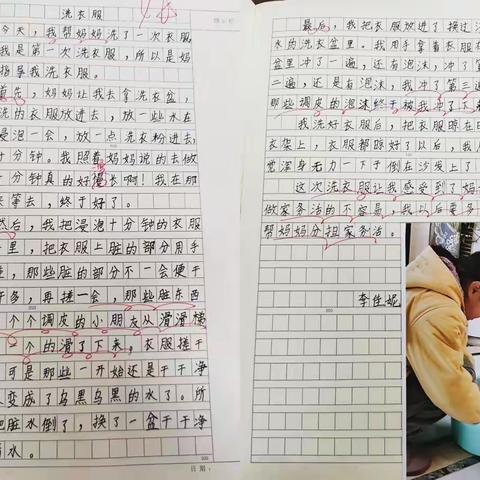 洗衣服
今天，我帮妈妈洗了一次衣服
我是第一次洗衣服，所以是妈
指导我洗衣服。
首先，妈妈让我去拿洗衣盆，
洗的衣服放进去，放一些水在
浸泡一会，放一点洗衣粉进去，
十分钟。我照着妈妈说的去做
一分钟真的好漫长啊！我在那
来等去，终于好了。
然后，我把浸泡十分钟的衣服
里，把衣服上脏的部分用手
，那些脏的部分不一会便干
许多，再搓一会，那些脏东西
个个调皮的小朋友从滑滑梯
一个的滑了下来。衣服搓干
可是那些一开始还是干干净
变成了乌黑乌黑的水了。所
把脏水倒了，换了一盆干干净
水。
日期：
最后，我把衣服放进了换过
水的洗衣盆里。我用手拿着衣服
盆里冲了一遍，还有泡沫，冲了第
二遍，还是有泡沫，我冲了第三
那些调皮的泡沫终于被我冲了下来
我洗好衣服后，把衣服晾在
衣架上，衣服都晾好了以后，我
觉浑身无力一下子倒在沙发上了
这次洗衣服让我感受到了妈
做家务活的不容易，我以后要多
帮妈妈分担家务活。
李佳妮